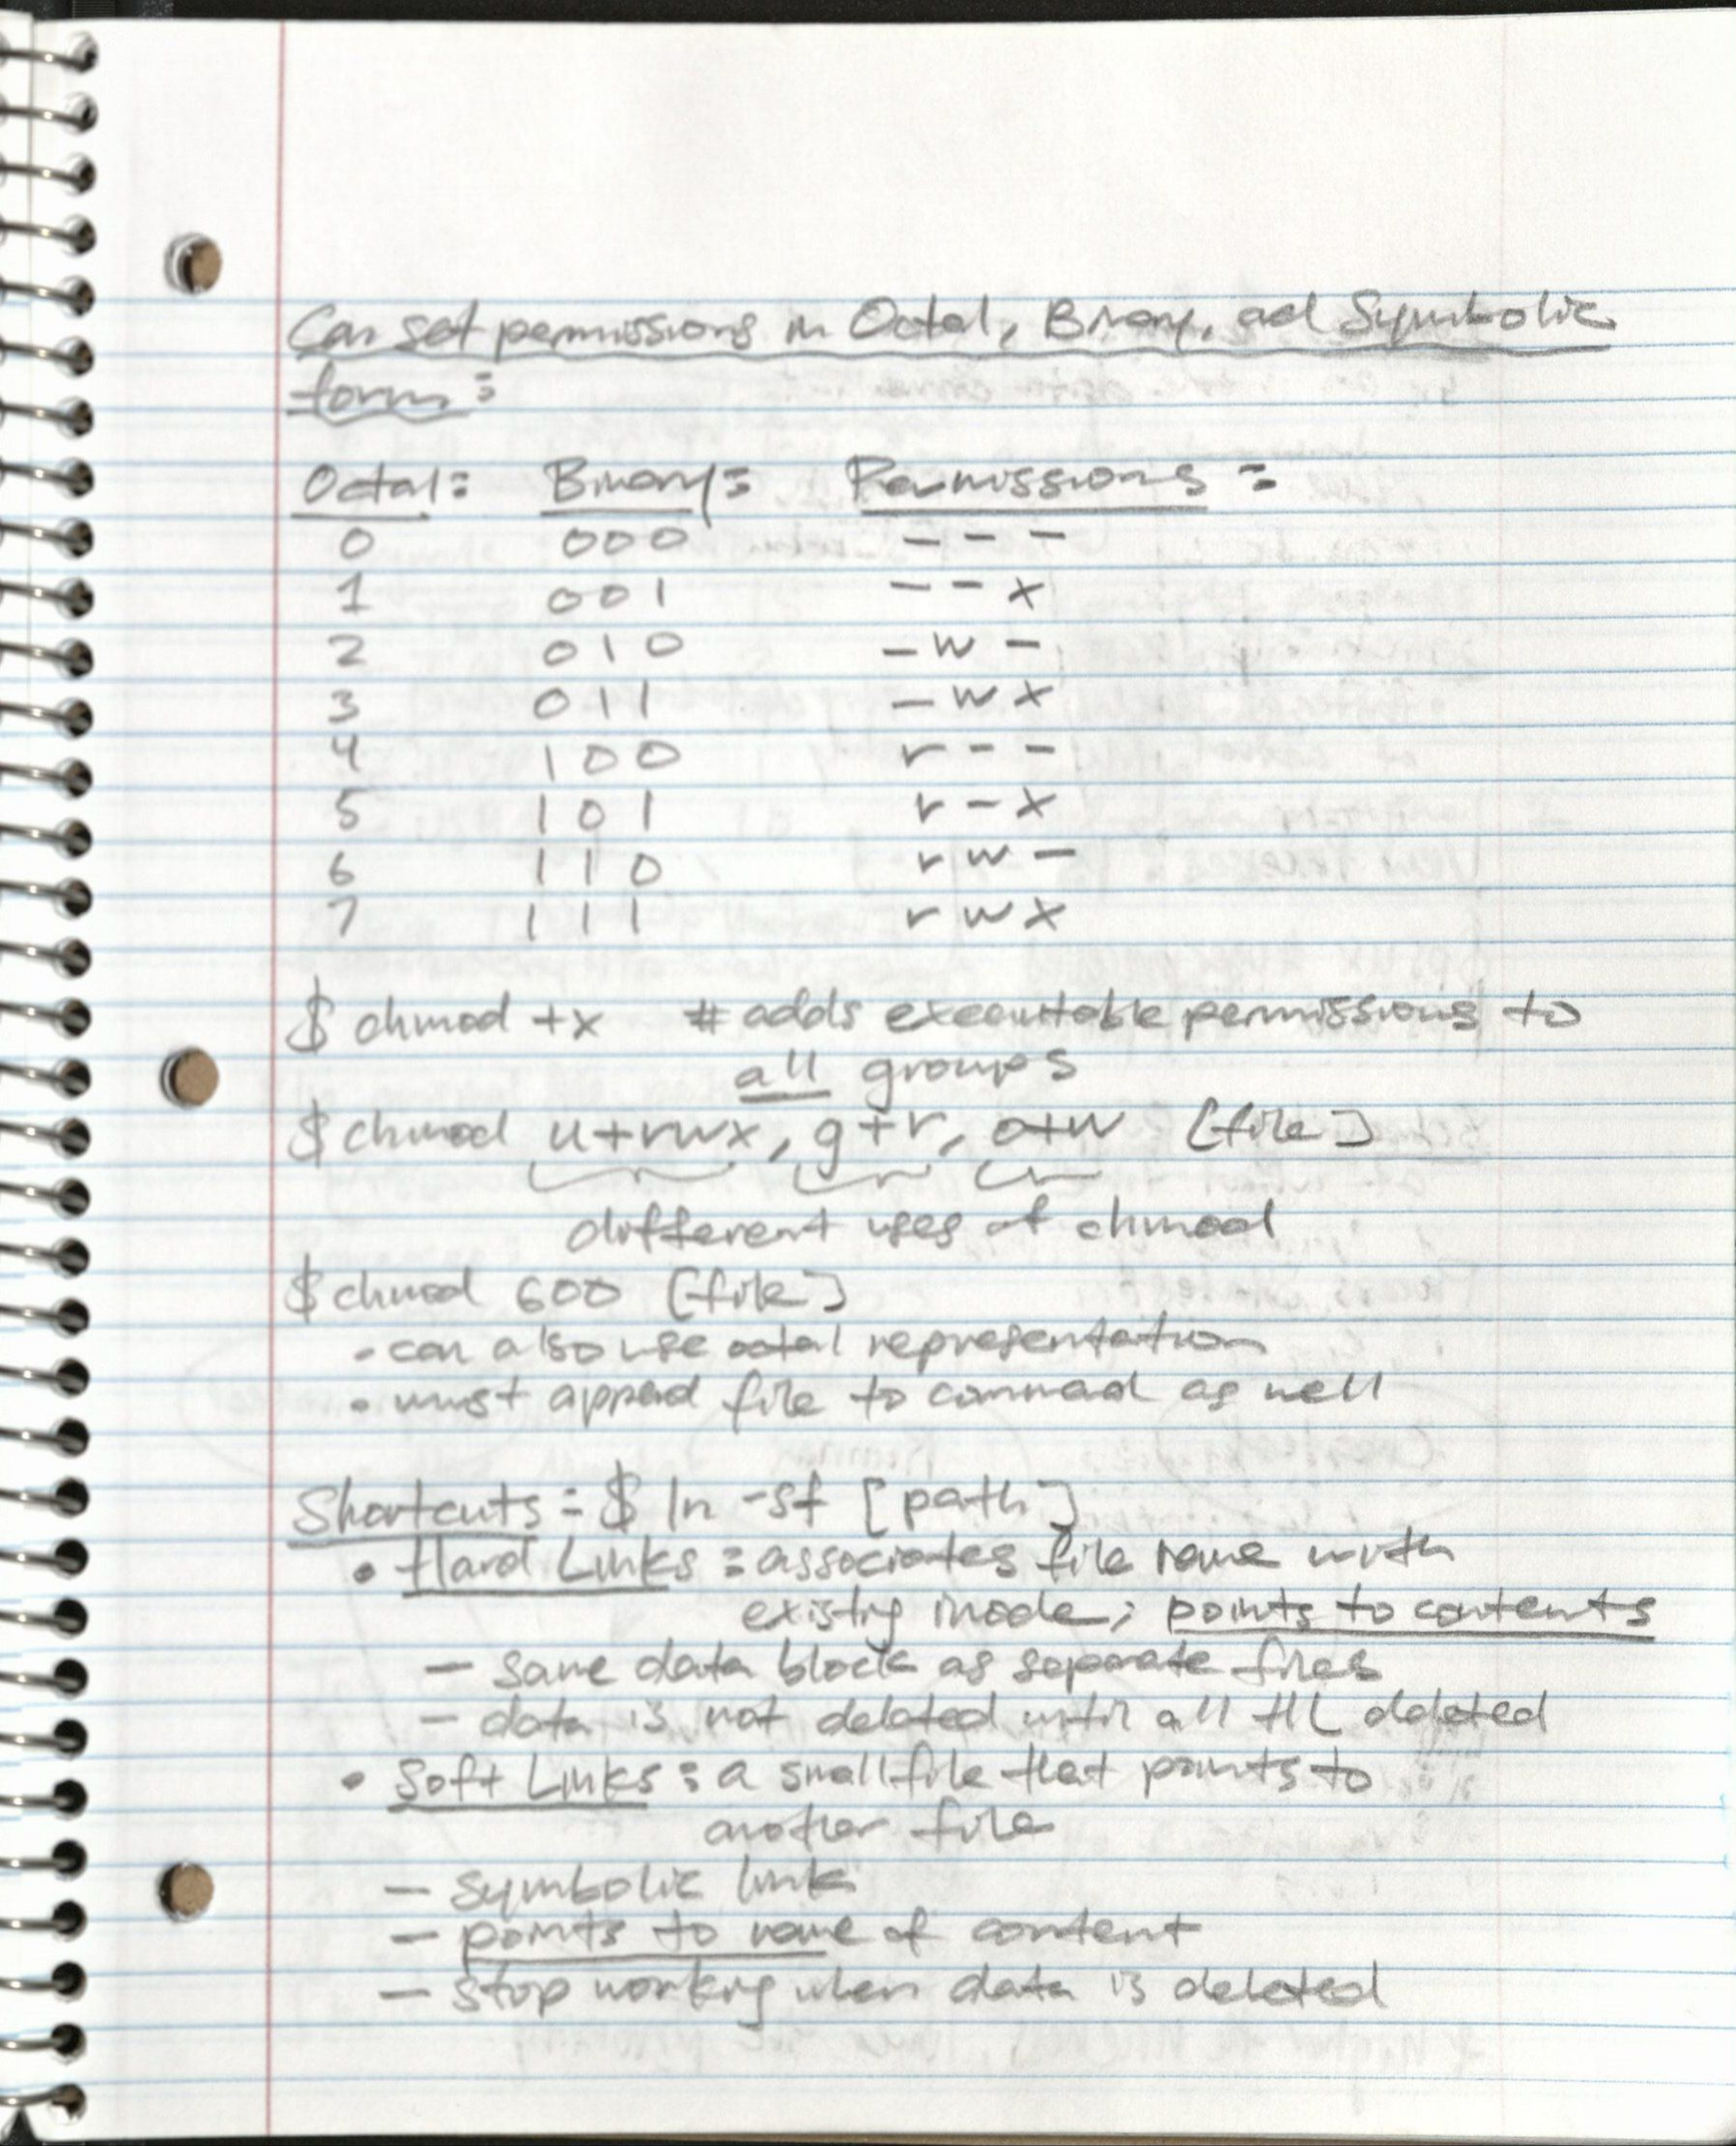 Can set permissions in Octal, Binary, and Symbolic
form:
Octal: Binary: Permissions:
0 000 ---
1 001 --x
2 010 -w-
3 011 -wx
4 100 r--
5 101 r-x
6 110 rw-
7 111 rwx
$ chmod +x # adds executable permissions to
all groups
$ chmod u+rwx, g+r, o+w [file]
different uses of chmod
$ chmod 600 [file]
• can also use octal representation
• must append file to command as well
Shortcuts: $ ln -sf [path]
• Hard Links: associates file name with
existing inode; points to contents
- same data block as separate files
- data is not deleted until all HL deleted
• Soft Links: a small file that points to
another file
- symbolic link
- points to name of content
- stop working when data is deleted